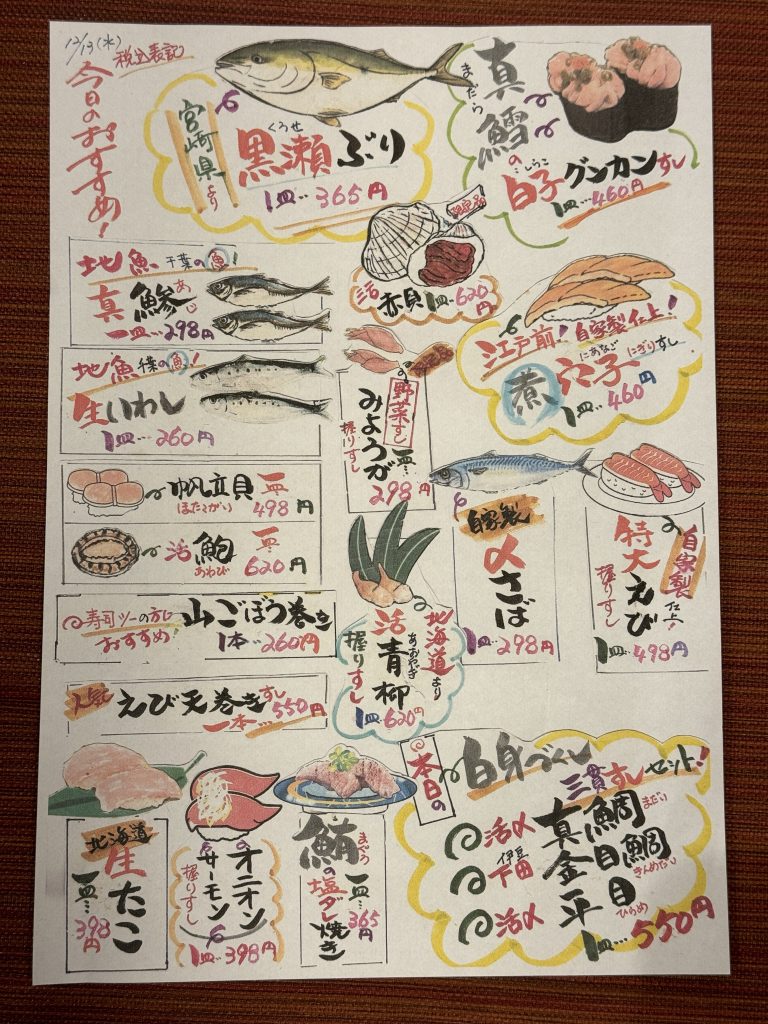 12/13(水)
税込表記
今日のおすすめ!
宮崎県より
くろせ
黒瀬ぶり
1皿…365円
まだら
真鱈の
しらこ
白子グンカンすし
1皿…460円
地魚 千葉の魚!
真鯵
あじ
一皿…298円
活赤貝1皿…620円
江戸前!自家製仕上!
にあなご にぎりすし
煮穴子
1皿…460円
地魚 千葉の魚!
生いわし
1皿…260円
野菜すし
みょうが
握りすし
一皿…
298円
帆立貝 一皿…
ほたてがい
498円
活鮑 一皿…
あわび
620円
寿司ツーの方に
おすすめ!
山ごぼう巻き
1本…260円
人気 えび天巻きすし
一本…550円
北海道より
活青柳
あおやぎ
握りすし
1皿…620円
自家製
〆さば
1皿…298円
自家製仕上!
特大えび
握りすし
1皿…498円
北海道
生たこ
一皿…
398円
オニオン
サーモン
握りすし
1皿…398円
まぐろ
鮪の塩ダレ焼き
一皿…
365円
本日の
白身づくし
三貫すしセット!
活〆 真鯛 まだい
伊豆
下田 金目鯛 きんめだい
活〆 平目 ひらめ
1皿…550円